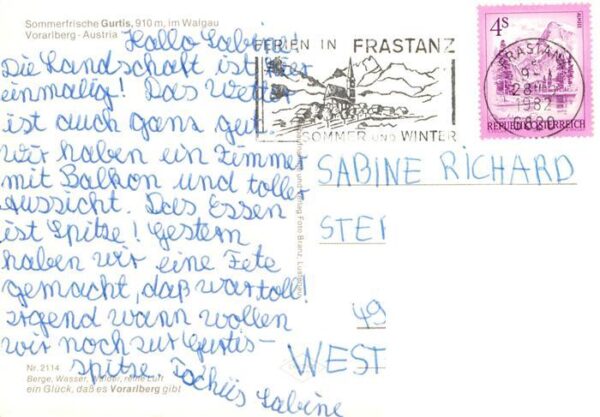 Sommerfrische Gurtis, 910 m, im Walgau
Vorarlberg - Austria
Hallo Sabine
Die Landschaft ist hier
einmalig! Das Wetter
ist auch ganz gut.
Wir haben ein Zimmer
mit Balkon und toller
Aussicht. Das Essen
ist Spitze! Gestern
haben wir eine Fete
gemacht, daß war toll!
irgend wann wollen
wir noch zur Gurtis-
spitze. Tschüs Sabine
Nr. 2114
Berge, Wasser, Wälder, reine Luft
ein Glück, daß es Vorarlberg gibt
FERIEN IN FRASTANZ
SOMMER UND WINTER
4S
REPUBLIK ÖSTERREICH
FRASTANZ
1982
6820
SABINE RICHARD
STEI
49
WEST